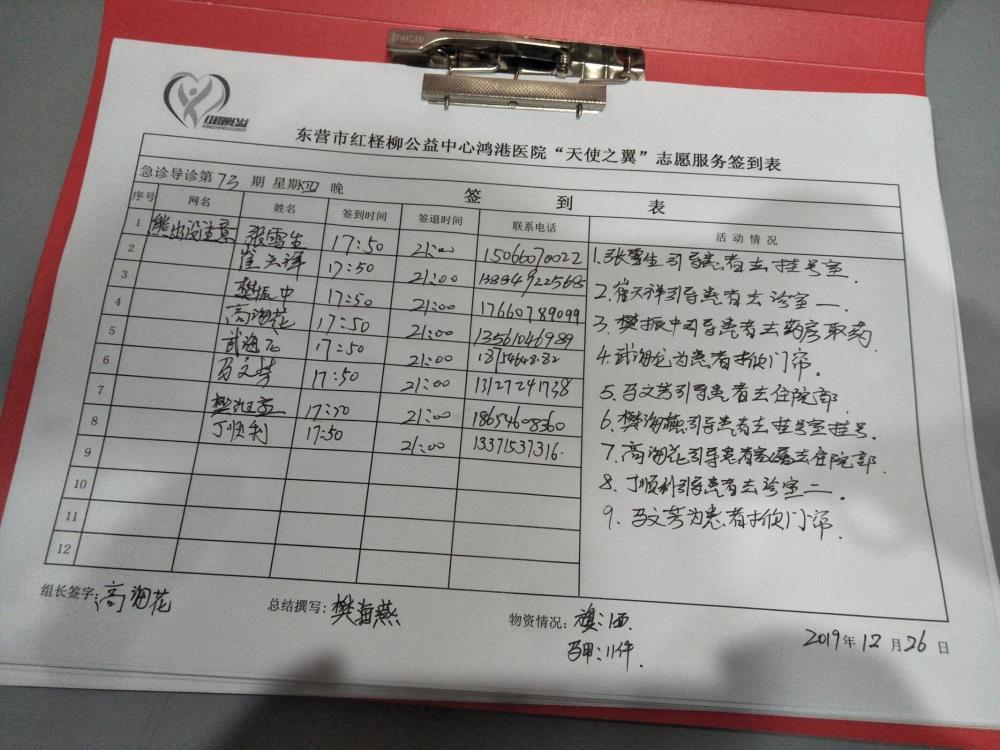 红柽柳公益
东营市红柽柳公益中心鸿港医院“天使之翼”志愿服务签到表
急诊导诊第73期 星期四 晚 签到表
序号 网名 姓名 签到时间 签退时间 联系电话 活动情况
1 熊出没注意 张雪生 17:50 21:00 15066070022
2 崔天祥 17:50 21:00
3 樊振中 17:50 21:00 17660789099
4 高海花 17:50 21:00 13561046989
5 武海龙 17:50 21:00
6 马文芳 17:50 21:00 13127241738
7 樊海燕 17:50 21:00 18654608360
8 丁顺利 17:50 21:00 13371537316.
9
10
11
12
1.张雪生引导患者去挂号室.
2.崔天祥引导患者去诊室一.
3.樊振中引导患者去药房取药.
4.武海龙为患者掀门帘.
5.马文芳引导患者去住院部.
6.樊海燕引导患者去挂号室挂号.
7.高海花引导患者家属去住院部.
8.丁顺利引导患者去诊室二.
9.马文芳为患者掀门帘.
组长签字:高海花 总结撰写:樊海燕 物资情况:旗:1面.
马甲:11件.
2019年12月26日